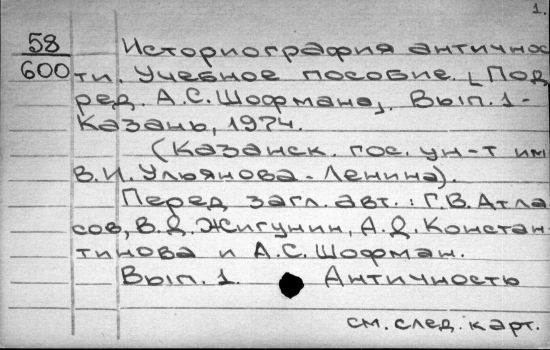 1.
58
600
Историография античнос
ти. Учебное пособие. [Под
ред. А.С.Шофмана]. Вып.1-
Казань, 1974.
(Казанск. гос. ун-т им
В.И.Ульянова-Ленина).
Перед загл. авт.: Г.В.Атла
сов, В.Д.Жигунин, А.Д.Констан
тинова и А.С.Шофман.
Вып.1. Античность
см.след.карт.